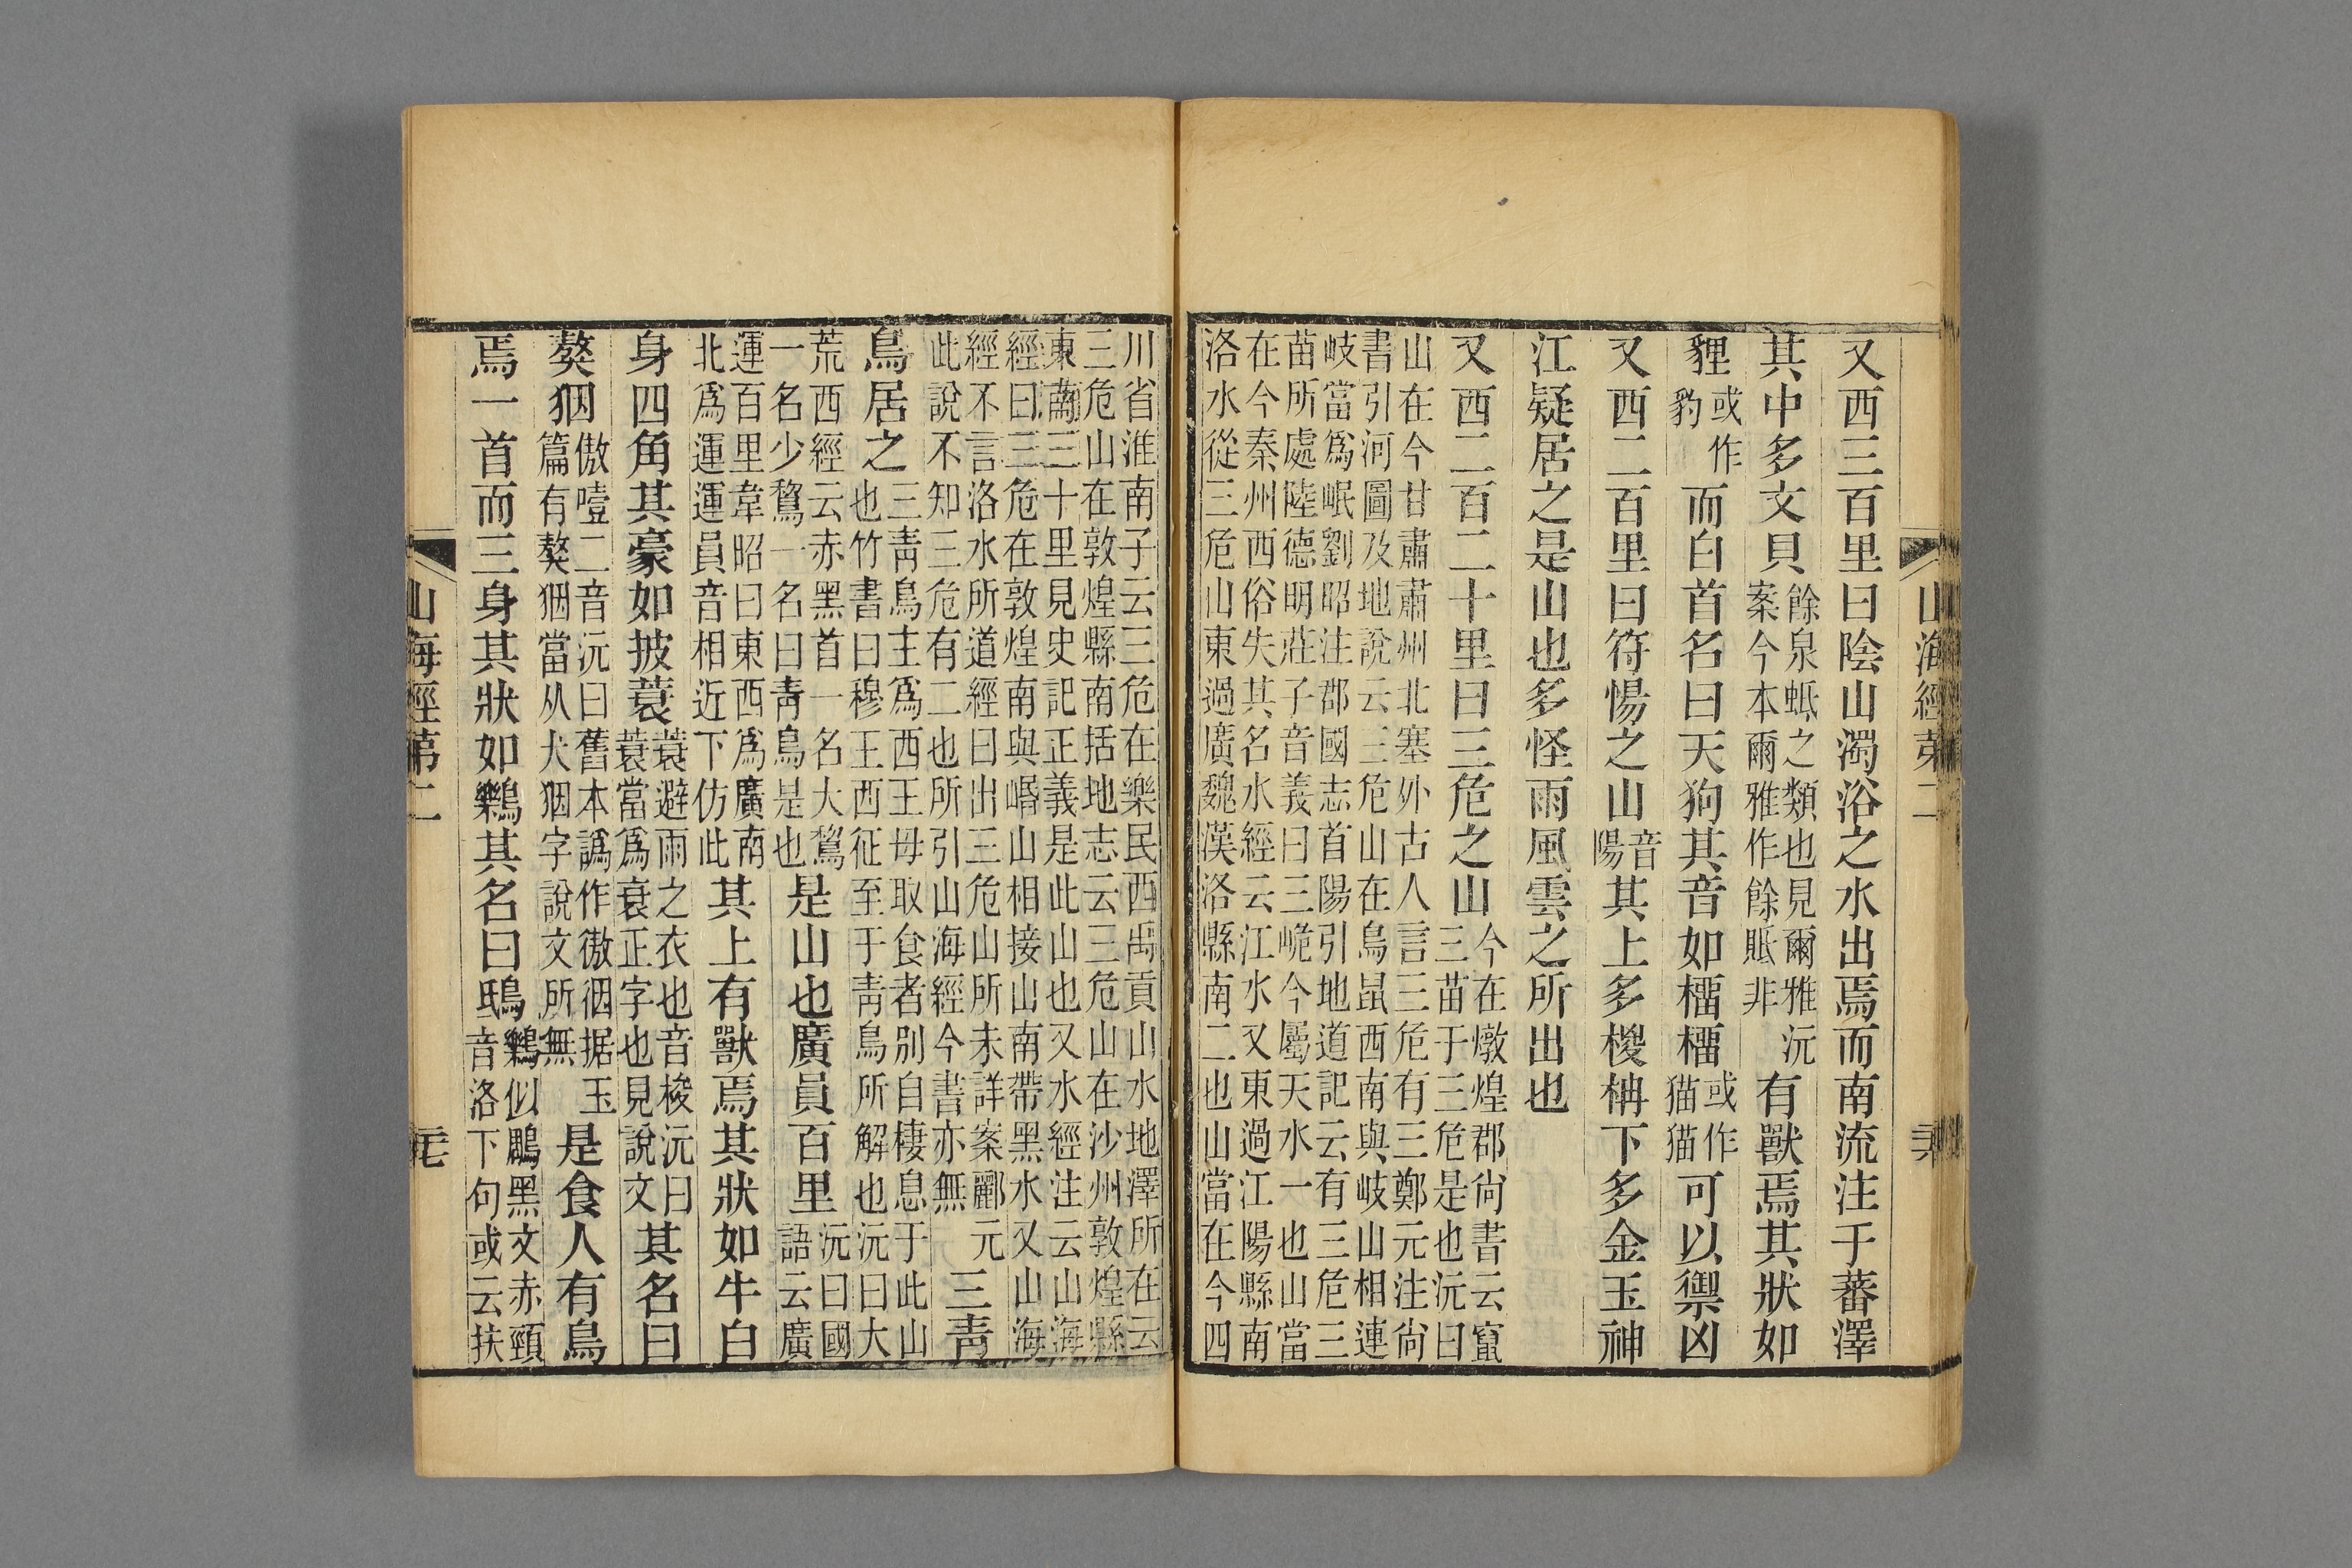 山海經第二
又西三百里曰陰山濁浴之水出焉而南流注于蕃澤
其中多文貝餘泉蚳之類也見爾雅沅案今本爾雅作餘貾非有獸焉其狀如
貍或作豹而白首名曰天狗其音如橊橊或作猫猫可以禦凶
又西二百里曰符惕之山音陽其上多椶枏下多金玉神
江疑居之是山也多怪雨風雲之所出也
又西二百二十里曰三危之山今在燉煌郡尙書云竄三苗于三危是也沅曰
山在今甘肅蕭州北塞外古人言三危有三鄭元注尙
書引河圖及地說云三危山在鳥鼠西南與岐山相連
岐當爲岷劉昭注郡國志首陽引地道記云有三危三
苗所處陸德明莊子音義曰三峗今屬天水一也山當
在今秦州西俗失其名水經云江水又東過江陽縣南
洛水從三危山東過廣魏漢洛縣南二也山當在今四
川省淮南子云三危在樂民西禹貢山水地澤所在云
三危山在敦煌縣南括地志云三危山在沙州敦煌縣
東南三十里見史記正義是此山也又水經注云山海
經曰三危在敦煌南與㟭山相接山南帶黑水又山海
經不言洛水所道經曰出三危山所未詳案酈元
此說不知三危有二也所引山海經今書亦無三靑
鳥居之三靑鳥主爲西王母取食者別自棲息于此山也竹書曰穆王西征至于靑鳥所解也沅曰大
荒西經云赤黑首一名大鵹一名少鵹一名曰靑鳥是也是山也廣員百里沅曰國語云廣
運百里韋昭曰東西爲廣南北爲運運員音相近下仿此其上有獸焉其狀如牛白
身四角其豪如披蓑蓑避雨之衣也音梭沅曰蓑當爲衰正字也見說文其名曰
獓𤝱傲噎二音沅曰舊本譌作徼徊据玉篇有獒𤝱當从犬𤝱字說文所無是食人有鳥
焉一首而三身其狀如𪈳其名曰鴟𪈳似鵰黑文赤頸音洛下句或云扶
山海經第二